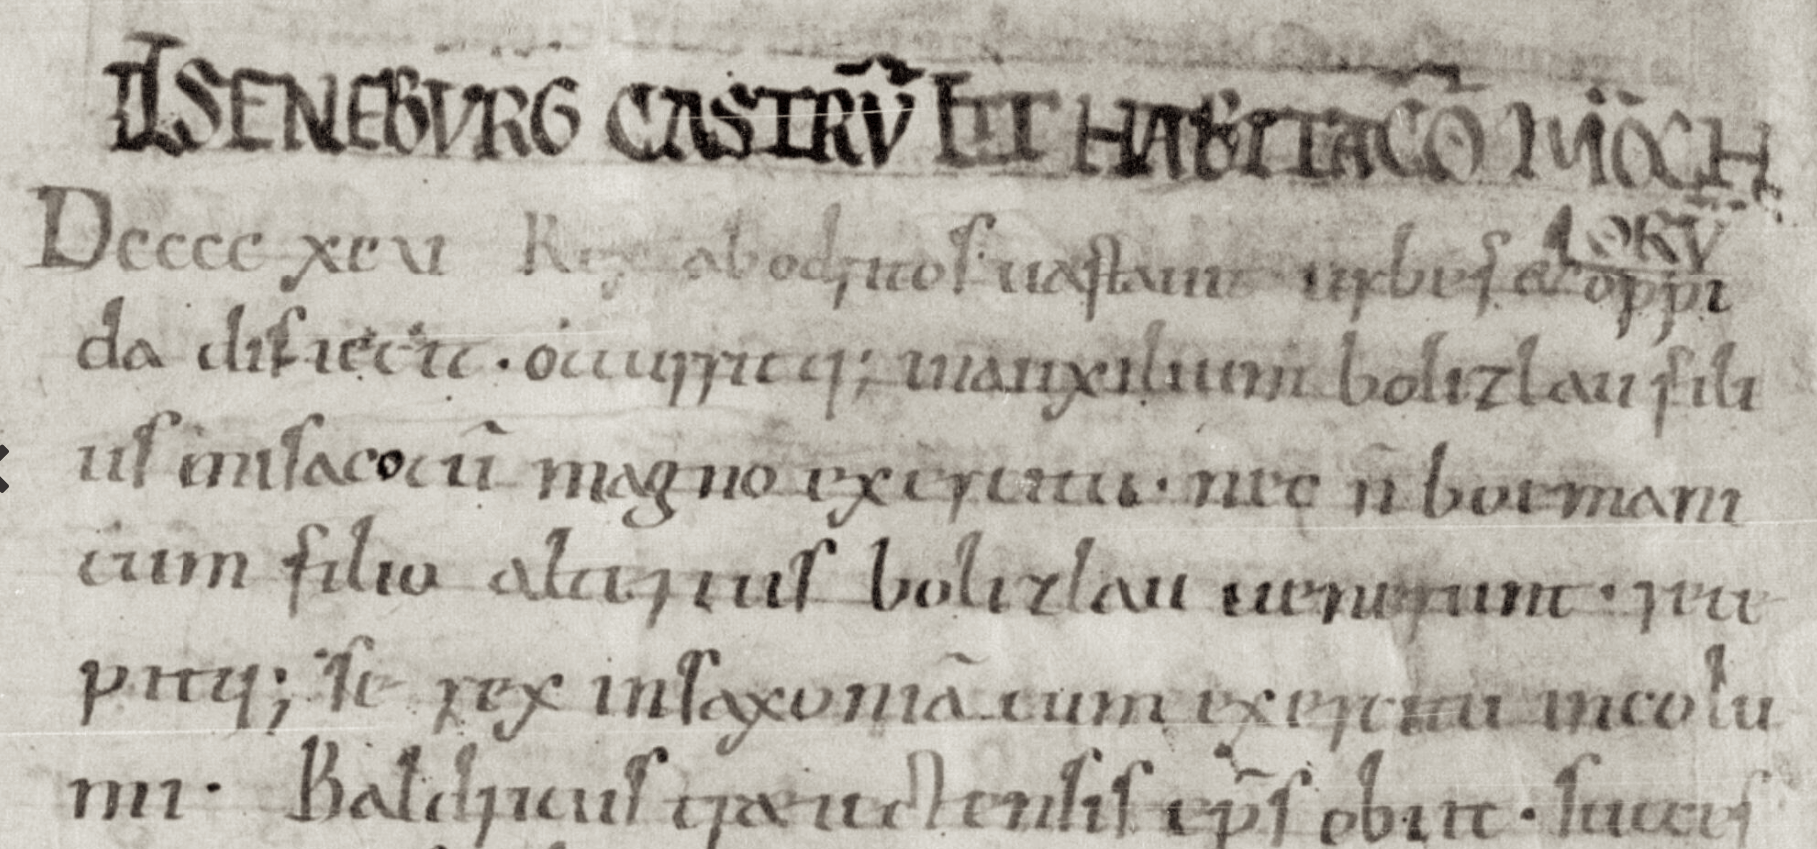 ILSENEBVRG CASTRV̄ ET HABITACŌ MŌACH
ORV̄
Dcccc xcvi Rex abodritos uastauit urbes & oppi
da disiecit · occurritq; inauxilium bolizlau fili
us misaco cū magno exercitu · nec n̄ boemani
cum filio alterius bolizlau uenerunt · rece
pitq; se rex insaxoniā cum exercitu incolu
mi · Baldricus traiectensis ep̄s obiit · succes